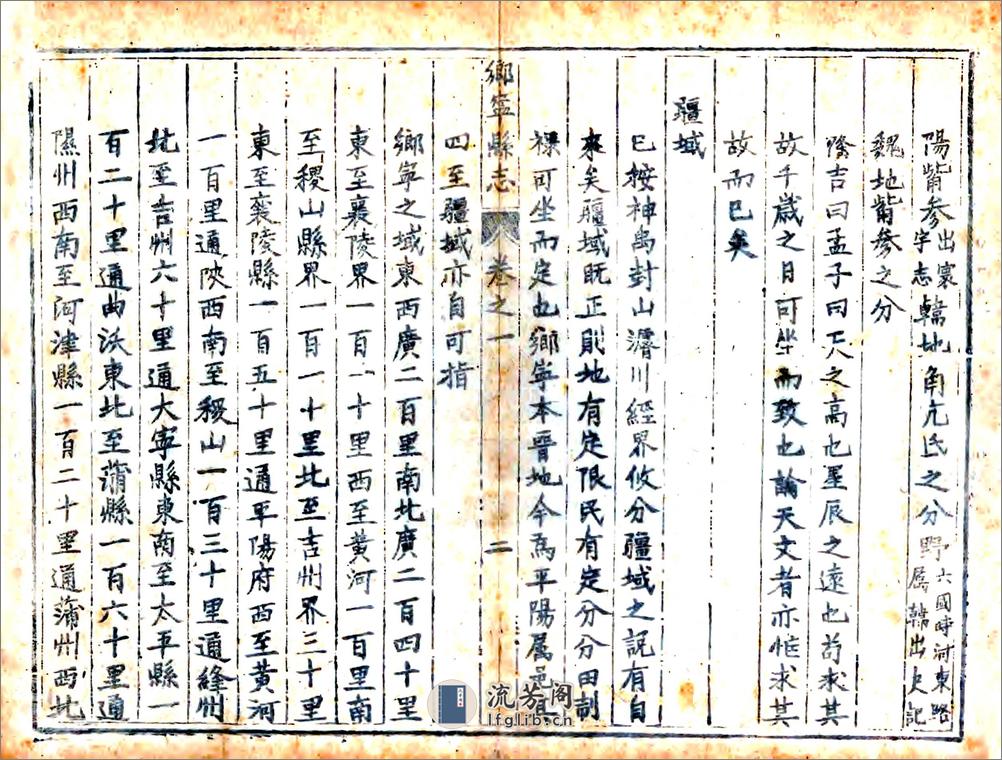 陽觜參出寰宇志韓地角亢氐之分野六國時河東路屬韓出史記
魏地觜參之分
隆吉曰孟子曰天之高也星辰之遠也苟求其
故千歲之日可坐而致也論天文者亦惟求其
故而已矣
疆域
已按神禹封山濬川經界攸分疆域之説有自
來矣疆域既正則地有定限民有定分分田制
祿可坐而定也鄉寧本晉地今為平陽属邑
四至疆域亦自可指
鄉寧縣志 卷之一 二
鄉寧之域東西廣二百里南北廣二百四十里
東至襄陵界一百一十里西至黄河一百里南
至稷山縣界一百一十里北至吉州界三十里
東至襄陵縣一百五十里通平陽府西至黄河
一百里通陝西南至稷山一百三十里通絳州
北至吉州六十里通大寧縣東南至太平縣一
百二十里通曲沃東北至蒲縣一百六十里通
隰州西南至河津縣一百二十里通蒲州西北
流芳阁
lfglib.cn